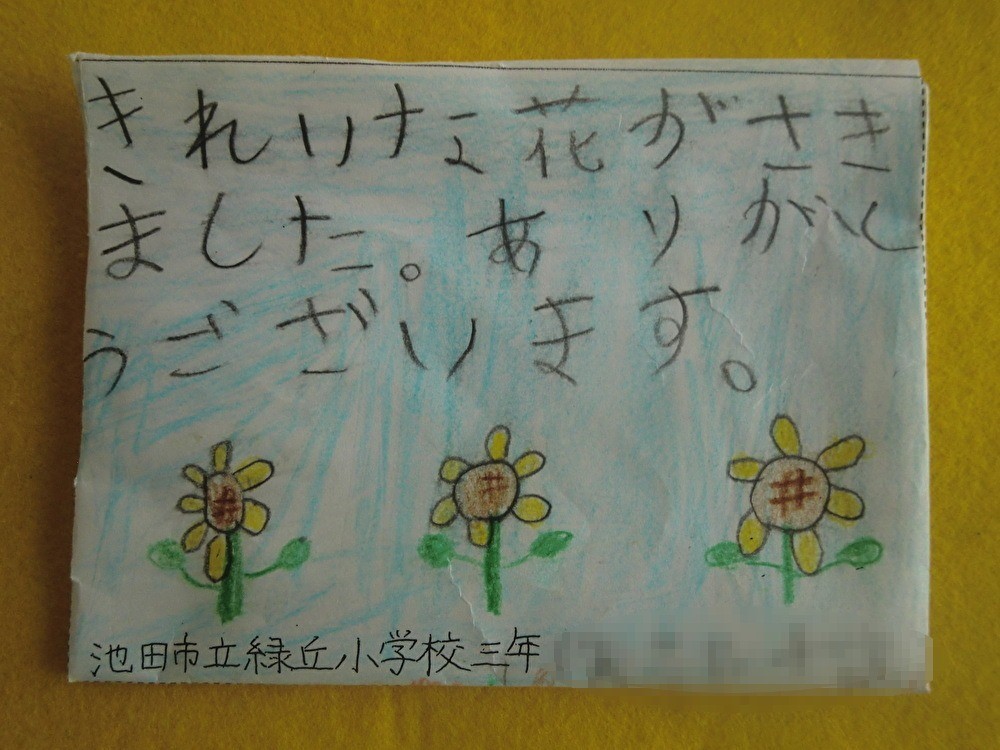 きれいな花がさき
ました。ありがと
うございます。
池田市立緑丘小学校三年